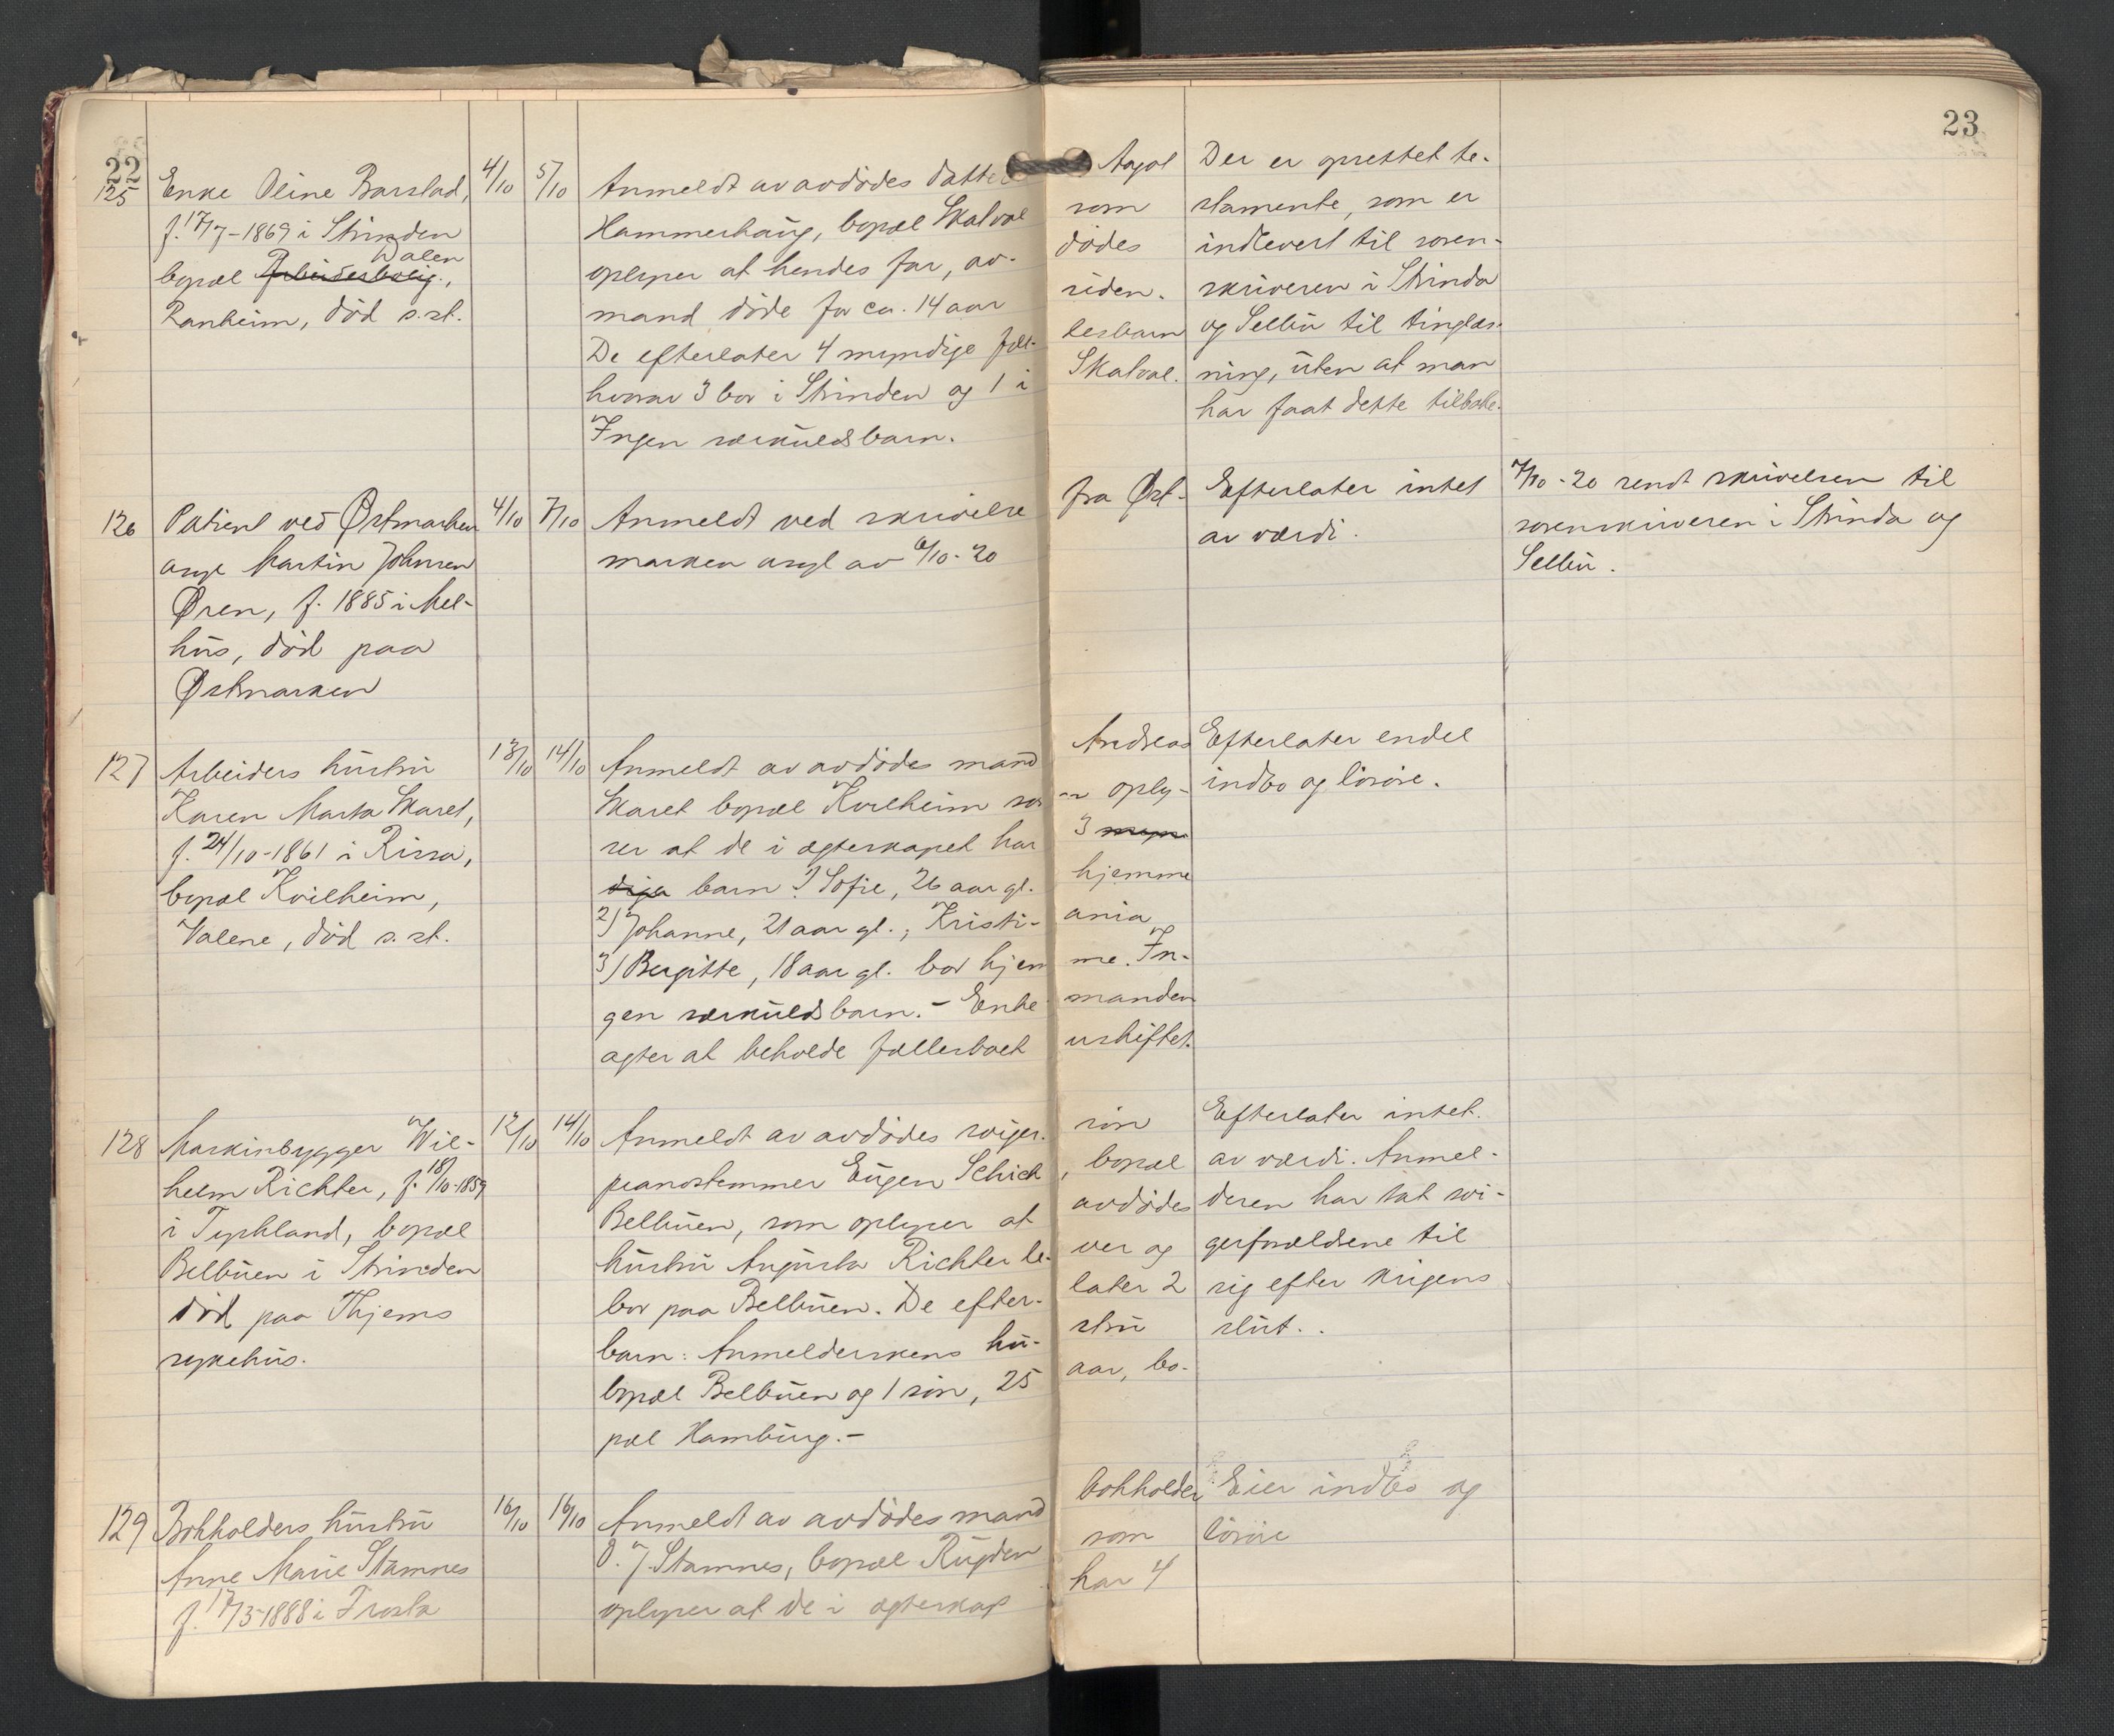 22
125 Enke Oline Barstad, 4/10 5/10 Anmeldt av avdødes datter Aagot Der er oprettet te-
f. 17/7-1869 i Strinden Hammerhaug, bopæl Skatval som stamente, som er
Dalen
bopæl Arbeiderbolig., oplyser at hendes far, av- dødes indlevert til soren-
Ranheim, død s. st. mand døde for ca. 14 aar siden. skriveren i Strinda
De efterlater 4 myndige fæl- lesbarn og Selbu til tinglæs-
hvorav 3 bor i Strinden og 1 i Skatval. ning, uten at man
Ingen særkuldsbarn. har faat dette tilbake.
23
126 Patient ved Østmarken 4/10 7/10 Anmeldt ved skrivelse fra Øst- Efterlater intet 7/10-20 sendt skrivelsen til
asyl Martin Johnsen marken asyl av 6/10-20 av værdi. sorenskriveren i Strinda og
Øren, f. 1885 i Mel- Selbu.
hus, død paa
Østmarken
127 Arbeiders hustru 13/10 14/10 Anmeldt av avdødes mand Andreas Efterlater endel
Karen Marta Skaret, Skaret bopæl Kvilheim som oply- indbo og løsøre.
f. 24/10-1861 i Rissa, ser at de i ægteskapet har 3 myn
bopæl Kvilheim, dige barn 1 Sofie, 26 aar gl. hjemme
Valene, død s. st. 2) Johanne, 21 aar gl., Kristi- ania
3) Bergitte, 18 aar gl. bor hjem me. In-
gen særkuldsbarn. - Enke manden
agter at beholde fællesboet uskiftet.
128 Maskinbygger Wil- 12/10 14/10 Anmeldt av avdødes sviger- søn Efterlater intet
helm Richter, f. 18/10-1859 pianostemmer Eugen Schick, bopæl av værdi. Anmel-
i Tyskland, bopæl Belbuen, som oplyser at avdødes deren har tat svi-
Belbuen i Strinden hustru Augusta Richter le- ver og gerforældrene til
død paa Thjems bor paa Belbuen. De efter- later 2 sig efter krigens
sykehus. barn: Anmelderskens hu- stru slut..
bopæl Belbuen og 1 søn, 25 aar, bo-
pæl Hamburg.-
129 Bokholders hustru 16/10 16/10 Anmeldt av avdødes mand bokholder Eier indbo og
Anne Marie Stamnes O. J. Stamnes, bopæl Rugden som løsøre
f. 17/3-1888 i Frosta oplyser at de i ægteskap har 4